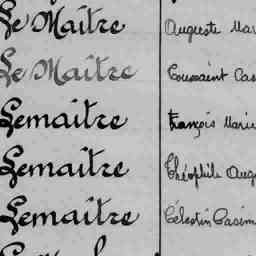 Le Maître Auguste Mar
Le Maître Toussaint Cas
Lemaître François Marie
Lemaître Théophile Aug
Lemaître Célestin Casim